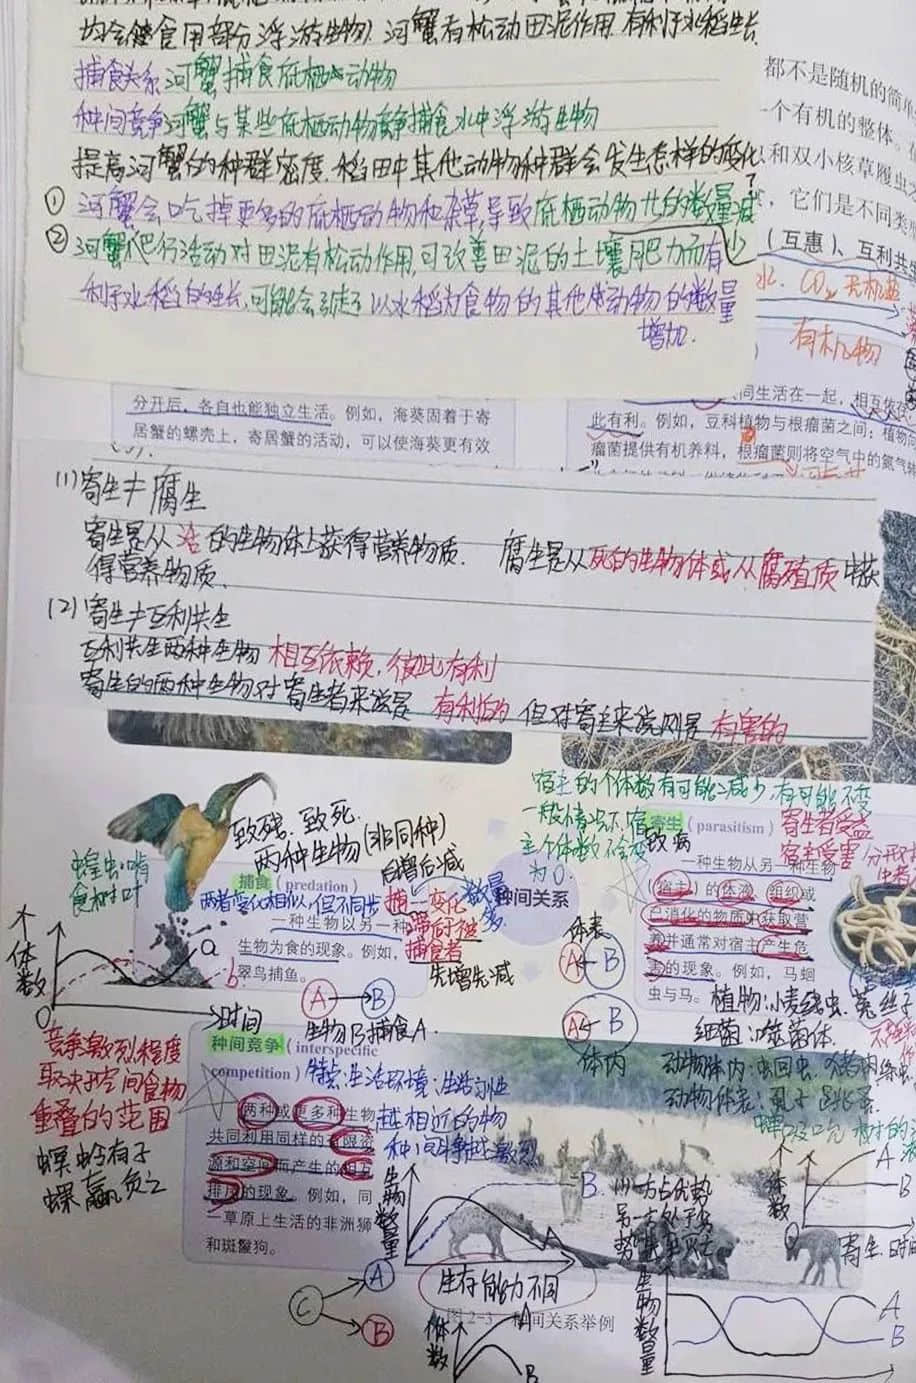 均会食用部分浮游生物) 河蟹有松动田泥作用,有利于水稻生长.
捕食关系 河蟹捕食底栖动物
种间竞争 河蟹与某些底栖动物竞争捕食水中浮游生物
提高河蟹的种群密度,稻田中其他动物种群会发生怎样的变化?
① 河蟹会吃掉更多的底栖动物和杂草,导致底栖动物 的数量减少
② 河蟹爬行活动对田泥有松动作用,可改善田泥的土壤肥力而有
利于水稻的生长,可能会引起了以水稻为食物的其他 动物的数量
增加.
都不是随机的简单
一个有机的整体。
和双小核草履虫
,它们是不同类
(互惠)、互利共
水、CO₂ 无机盐
有机物
分开后,各自也能独立生活。例如,海葵固着于寄
居蟹的螺壳上,寄居蟹的活动,可以使海葵更有效
同生活在一起,相互依存
此有利。例如,豆科植物与根瘤菌之间:植物
瘤菌提供有机养料,根瘤菌则将空气中的氮气
(1) 寄生≠腐生
寄生是从活的生物体上获得营养物质. 腐生是从死的生物体或从腐殖质中获
得营养物质.
(2) 寄生≠互利共生
互利共生两种生物 相互依赖,彼此有利
寄生的两种生物对寄生者来说是 有利的 但对寄主来说则是 有害的
宿主的个体数有可能减少,有可能不变
一般情况下,宿
主个体数不会变
为0.
致残、致死.
两种生物(非同种)
蝗虫啃
食树叶
捕食(predation)
两者变化相似,但不同步
一种生物以另一种
生物为食的现象。例如,
翠鸟捕鱼。
捕食者
先增先减
数量
多.
A→B
生物B捕食A.
个体数
a
b
O
时间
种间关系
体表
A B
A B
体内
寄生(parasitism)
致病
寄生者受益
宿主受害
一种生物从另一种生物
(宿主)的体液、组织或
已消化的物质中获取营
养并通常对宿主产生危
害的现象。例如,马蛔
虫与马。
植物:小麦线虫、菟丝子
细菌:噬菌体.
动物体内:蛔虫、猪肉绦虫
动物体表:虱子 跳蚤
竞争激烈程度
取决于空间食物
重叠的范围
螟蛉有子
蜾蠃负之
种间竞争(interspecific
competition)
特点:生活环境:生活习性
越相近的物
种间斗争越激烈
两种或更多种生物
共同利用同样的有限资
源和空间而产生的相互
排斥的现象。例如,同
一草原上生活的非洲狮
和斑鬣狗。
C A
B
生物数量
B
A
生存能力不同
一方占优势
另一方处于劣
势甚至灭亡
图2-3 种间关系举例
个体数
A
B
个体数
A
B
O
寄生
生物数量
A
B